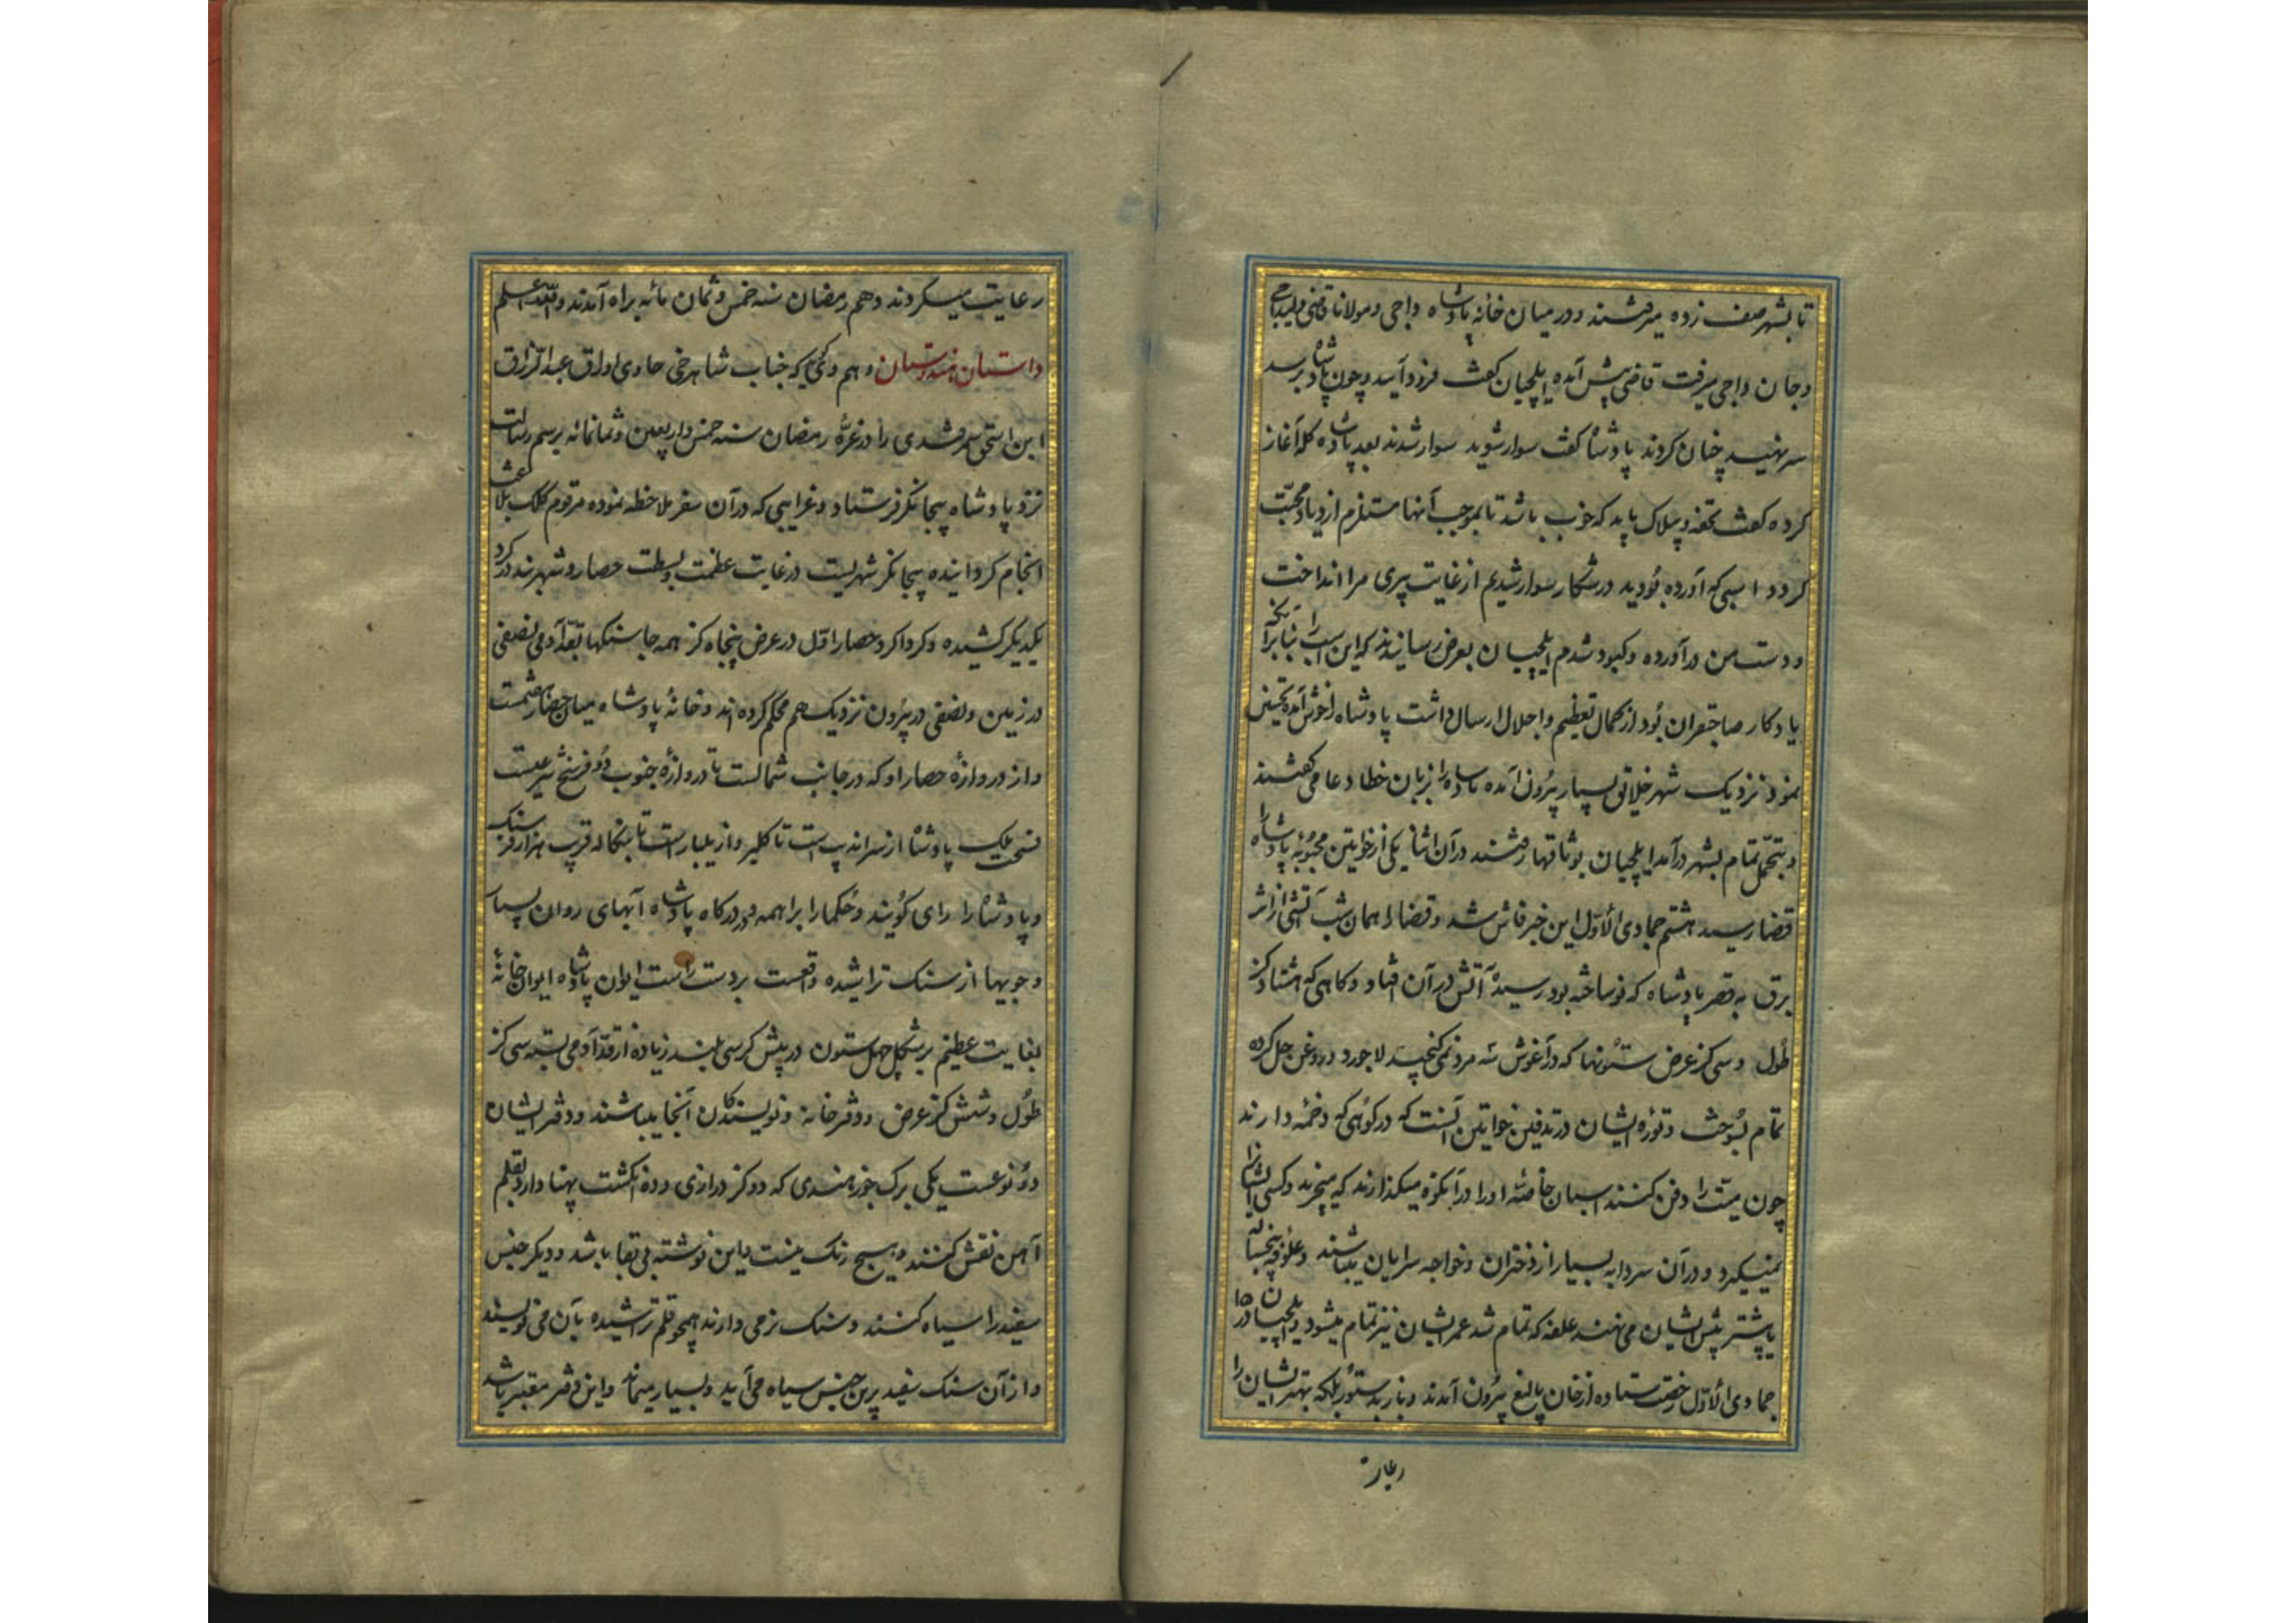 تا بشهر صف زده میرفتند و در میان خانه پادشاه و اجی و مولانا قاضی و لیداجی
و جان و اجی میرفت قاضی پیش آمده ایلچیان کفت فرود آیید و چون پادشاه برسد
سر نهید چنان کردند پادشاه کفت سوار شوید سوار شدند بعد پادشاه کله آغاز
کرده کفت تحفه و بیلاک باید که خوب باشد تا بموجب آنها مستلزم ازدیاد محبت
کردد اسبی که آورده بودید در شکار سوار شدیم از غایت پیری مرا انداخت
و دست من درآورده و کبود شدم ایلچیان بعرض رسانیدند که این اسب را بنابرآنکه
یادکار صاحبقران بود از کمال تعظیم و اجلال ارسال داشت پادشاه را خوش آمده تحسین
نمود نزدیک شهر خلایق بسیار بیرون آمده پادشاه را بزبان خطا دعا می کفتند
و بتجمل تمام بشهر درآمد ایلچیان بوثاقها رفتند در آن اثنا یکی از خواتین محبوبه پادشاه را
قضا رسید هشتم جمادی الاول این خبر فاش شد و قضا را همان شب آتشی از اثر
برق به قصر پادشاه که نو ساخته بود رسیده آتش در آن افتاد و کاهی که هشتاد کز
طول و سی کز عرض ستونها که در آغوش سه مرد نمی کنجید لاجورد و روغن حل کرده
تمام بسوخت و توره ایشان در تدفین خواتین آنست که در کوهی که دخمه دارند
چون میت را دفن کنند اسبان خاصه او را در آنکوه میکذارند که میچرند و کسی ایشانرا
نمیکیرد و در آن سردابه بسیار از دختران و خواجه سرایان میباشند و علوفه پنجساله
یا بیشتر پیش ایشان می نهند علفه که تمام شد عمر ایشان نیز تمام میشود و ایلچیان در ۱۵
جمادی الاول رخصت ستاده از خان بالیغ بیرون آمدند و باز بدستور بلکه بهتر ایشان را
رعایت
رعایت میکردند دهم رمضان سنه خمس و ثمان مائه براه آمدند والله اعلم
داستان هندوستان دهم و کمی که جناب شاهرخی حاوی اوراق عبدالرزاق
ابن اسحق سمرقندی را در غره رمضان سنه خمس و اربعین و ثمانمائه برسم رسالت
نزد پادشاه بیجانکر فرستاد و غرایبی که در آن سفر ملاحظه نموده مرقوم کلک بلاغت
انجام کردانیده بیجانکر شهریست در غایت عظمت و بسطت حصار و شهربند در کرد
یکدیکر کشیده و کرداکرد حصار اول در عرض پنجاه کز همه جا سنکها بقد آدمی نصفی
در زمین و نصفی در بیرون نزدیک هم محکم کرده اند و خانه پادشاه میان حصار هفتمست
و از دروازه حصار او که در جانب شمالست تا دروازه جنوب دو فرسخ شرعیست
فسحت ملک پادشاه از سرانه پست تا کلبر و از ملیبار است تا بنکاله قریب هزار فرسنک
و پادشاه را رای کویند و حکما را براهمه و در درکاه پادشاه آبهای روان بسیار
و جویها از سنک تراشیده واقعست بر دست راست ایوان پادشاه ایوان خانهٔ
بغایت عظیم بر شکل چهل ستون در پیش کرسی بلند زیاده از قد آدمی بسته سی کز
طول و شش کز عرض و دفتر خانه و نویسندکان آنجا میباشند و دفتر ایشان
دو نوعست یکی برک جوز هندی که دو کز درازی و ده انکشت پهنا دارد بقلم
آهن نقش کنند هیچ رنک نیست و این نوشته بی بقا باشد و دیکر جنس
سفید را سیاه کنند و سنک نرمی دارند همچو قلم تراشیده بآن می نویسند
و از آن سنک سفید برین جنس سیاه می آید و بسیار میماند و این دفتر معتبر باشد